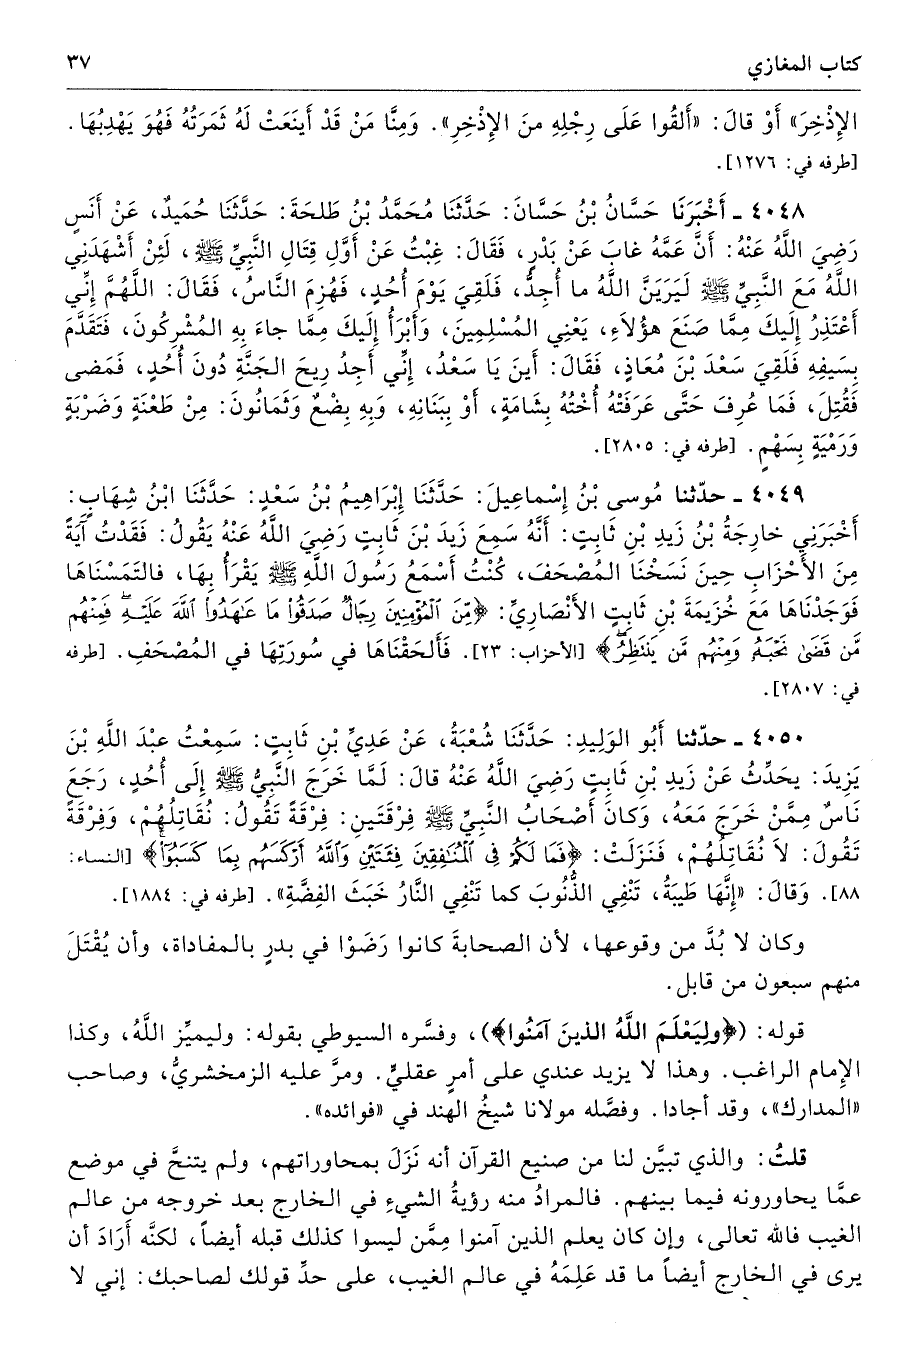 كتاب المغازي ٣٧
الإِذْخِرَ» أَوْ قالَ: «أَلقُوا عَلَى رِجْلِهِ منَ الإِذْخِرِ». وَمِنَّا مَنْ قَدْ أَينَعَتْ لَهُ ثَمَرَتُهُ فَهُوَ يَهْدِبُهَا.
[طرفه في: ١٢٧٦].
٤٠٤٨ ـ أَخْبَرَنَا حَسَّانُ بْنُ حَسَّانَ: حَدَّثَنَا مُحَمَّدُ بْنُ طَلحَةَ: حَدَّثَنَا حُمَيدٌ، عَنْ أَنَسٍ
رَضِيَ اللَّهُ عَنْهُ: أَنَّ عَمَّهُ غابَ عَنْ بَدْرٍ، فَقَالَ: غِبْتُ عَنْ أَوَّلِ قِتَالِ النَّبِيِّ ﷺ، لَئِنْ أَشْهَدَنِي
اللَّهُ مَعَ النَّبِيِّ ﷺ لَيَرَيَنَّ اللَّهُ ما أُجِدُّ، فَلَقِيَ يَوْمَ أُحُدٍ، فَهُزِمَ النَّاسُ، فَقَالَ: اللَّهُمَّ إِنِّي
أَعْتَذِرُ إِلَيكَ مِمَّا صَنَعَ هؤُلاَءِ، يَعْنِي المُسْلِمِينَ، وَأَبْرَأُ إِلَيكَ مِمَّا جاءَ بِهِ المُشْرِكُونَ، فَتَقَدَّمَ
بِسَيفِهِ فَلَقِيَ سَعْدَ بْنَ مُعَاذٍ، فَقَالَ: أَينَ يَا سَعْدُ، إِنِّي أَجِدُ رِيحَ الجَنَّةِ دُونَ أُحُدٍ، فَمَضى
فَقُتِلَ، فَمَا عُرِفَ حَتَّى عَرَفَتْهُ أُخْتُهُ بِشَامَةٍ، أَوْ بِبَنَانِهِ، وَبِهِ بِضْعٌ وَثَمَانُونَ: مِنْ طَعْنَةٍ وَضَرْبَةٍ
وَرَمْيَةٍ بِسَهْمٍ. [طرفه في: ٢٨٠٥].
٤٠٤٩ ـ حدّثنا مُوسى بْنُ إِسْماعِيلَ: حَدَّثَنَا إِبْرَاهِيمُ بْنُ سَعْدٍ: حَدَّثَنَا ابْنُ شِهَابٍ:
أَخْبَرَنِي خارِجَةُ بْنُ زَيدِ بْنِ ثَابِتٍ: أَنَّهُ سَمِعَ زَيدَ بْنَ ثَابِتٍ رَضِيَ اللَّهُ عَنْهُ يَقُولُ: فَقَدْتُ آيَةً
مِنَ الأَحْزَابِ حِينَ نَسَخْنَا المُصْحَفَ، كُنْتُ أَسْمَعُ رَسُولَ اللَّهِ ﷺ يَقْرَأُ بِهَا، فالتَمَسْنَاهَا
فَوَجَدْنَاهَا مَعَ خُزَيمَةَ بْنِ ثَابِتٍ الأَنْصَارِيِّ: ﴿مِّنَ ٱلْمُؤْمِنِينَ رِجَالٌ صَدَقُوا۟ مَا عَٰهَدُوا۟ ٱللَّهَ عَلَيْهِ فَمِنْهُم
مَّن قَضَىٰ نَحْبَهُۥ وَمِنْهُم مَّن يَنتَظِرُ﴾ [الأحزاب: ٢٣]. فَأَلحَقْنَاهَا في سُورَتِهَا في المُصْحَفِ. [طرفه
في: ٢٨٠٧].
٤٠٥٠ ـ حدّثنا أَبُو الوَلِيدِ: حَدَّثَنَا شُعْبَةُ، عَنْ عَدِيِّ بْنِ ثَابِتٍ: سَمِعْتُ عبْدَ اللَّهِ بْنَ
يَزِيدَ: يحَدِّثُ عَنْ زَيدِ بْنِ ثَابِتٍ رَضِيَ اللَّهُ عَنْهُ قالَ: لَمَّا خَرَجَ النَّبِيُّ ﷺ إِلَى أُحُدٍ، رَجَعَ
نَاسٌ مِمَّنْ خَرَجَ مَعَهُ، وَكانَ أَصْحَابُ النَّبِيِّ ﷺ فِرْقَتَينِ: فِرْقَةً تَقُولُ: نُقَاتِلُهُمْ، وَفِرْقَةً
تَقُولَ: لاَ نُقَاتِلُهُمْ، فَنَزَلَتْ: ﴿فَمَا لَكُمْ فِى ٱلْمُنَٰفِقِينَ فِئَتَيْنِ وَٱللَّهُ أَرْكَسَهُم بِمَا كَسَبُوٓا۟﴾ [النساء:
٨٨]. وَقالَ: «إِنَّهَا طَيبَةُ، تَنْفِي الذُّنُوبَ كما تَنْفِي النَّارُ خَبَثَ الفِضَّةِ». [طرفه في: ١٨٨٤].
وكان لا بُدَّ من وقوعها، لأن الصحابةَ كانوا رَضَوْا في بدرٍ بالمفاداة، وأن يُقْتَلَ
منهم سبعون من قابل.
قوله: (﴿ولِيَعْلَمَ اللَّهُ الذينَ آمَنُوا﴾)، وفسَّره السيوطي بقوله: وليميِّز اللَّهُ، وكذا
الإِمام الراغب. وهذا لا يزيد عندي على أمرٍ عقليٍّ. ومرَّ عليه الزمخشريُّ، وصاحب
«المدارك»، وقد أجادا. وفصَّله مولانا شيخُ الهند في «فوائده».
قلتُ: والذي تبيَّن لنا من صنيع القرآن أنه نَزَلَ بمحاوراتهم، ولم يتنحَّ في موضع
عمَّا يحاورونه فيما بينهم. فالمرادُ منه رؤيةُ الشيءِ في الخارج بعد خروجه من عالم
الغيب فالله تعالى، وإن كان يعلم الذين آمنوا مِمَّن ليسوا كذلك قبله أيضاً، لكنَّه أَرَادَ أن
يرى في الخارج أيضاً ما قد عَلِمَهُ في عالم الغيب، على حدِّ قولك لصاحبك: إني لا